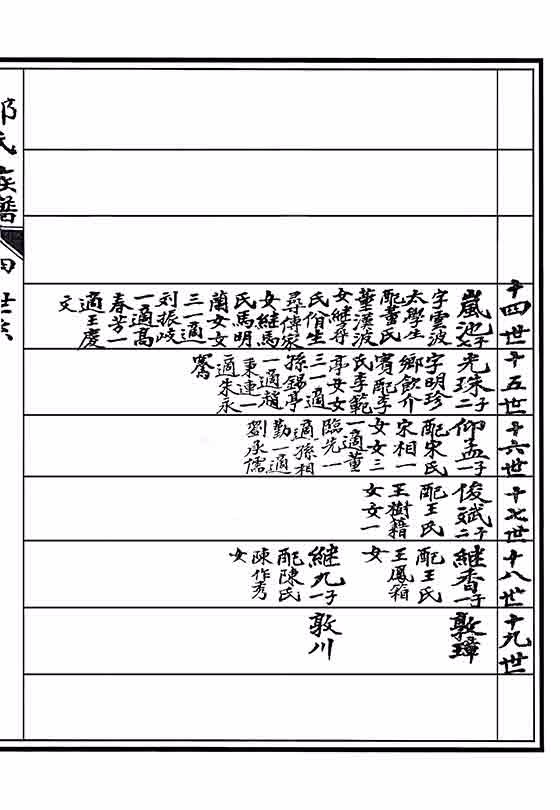 十四世
嵐池 子一
字雲波
太學生
配董氏
董漢波
女継尋
氏佾生
尋傳家
女継馬
氏馬明
蘭女女
三一適
刘振岐
一適高
春芳一
適王慶
文
十五世
光珠 子二
字明珍
鄉飲介
賓配李
氏李範
亭女女
三一適
孫錫亭
一適趙
東連一
適朱永
騫
十六世
仰孟 子一
配宋氏
宋相一
女女三
一適董
臨先一
適孫相
勤一適
劉承儒
十七世
俊斌 子二
配王氏
王樹籍
女女一
十八世
継香 子一
配王氏
王鳳箱
女
継九 子一
配陳氏
陳作秀
女
十九世
敦璋
敦川
氏族譜